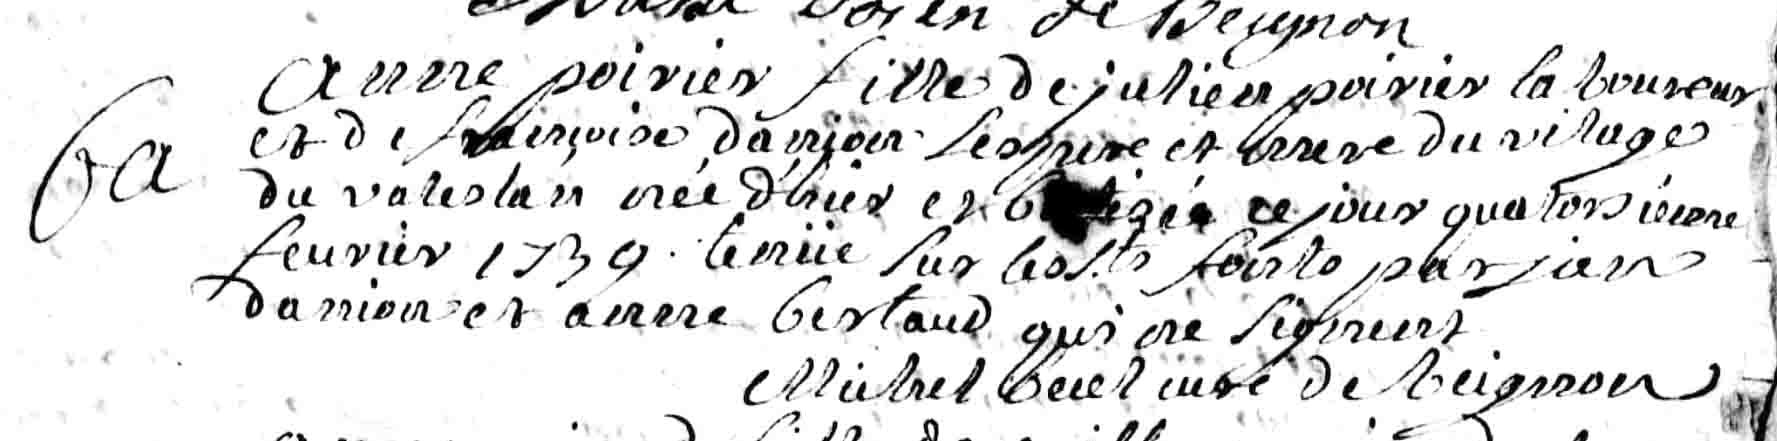 de Beignon
anne poirier fille de julien poirier laboureur
et de francoise danion ses pere et mere du vilage
du valeslan née d'hier et batizée ce jour quatorsieme
fevrier 1739. tenüe sur les sts fonts par jan
danion et anne bertaud qui ne signent
Michel curé de beignon
ba